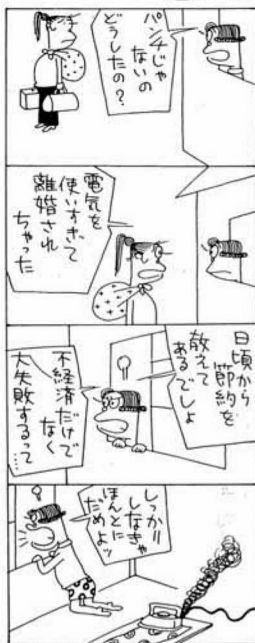 パンチじゃ
ないの
どうしたの?
電気を
使いすぎて
離婚され
ちゃった
日頃から
節約を
教えて
あるでしょ
不経済だけで
なく
大失敗するって…
しっかり
しなきゃ
ほんとに
だめよッ